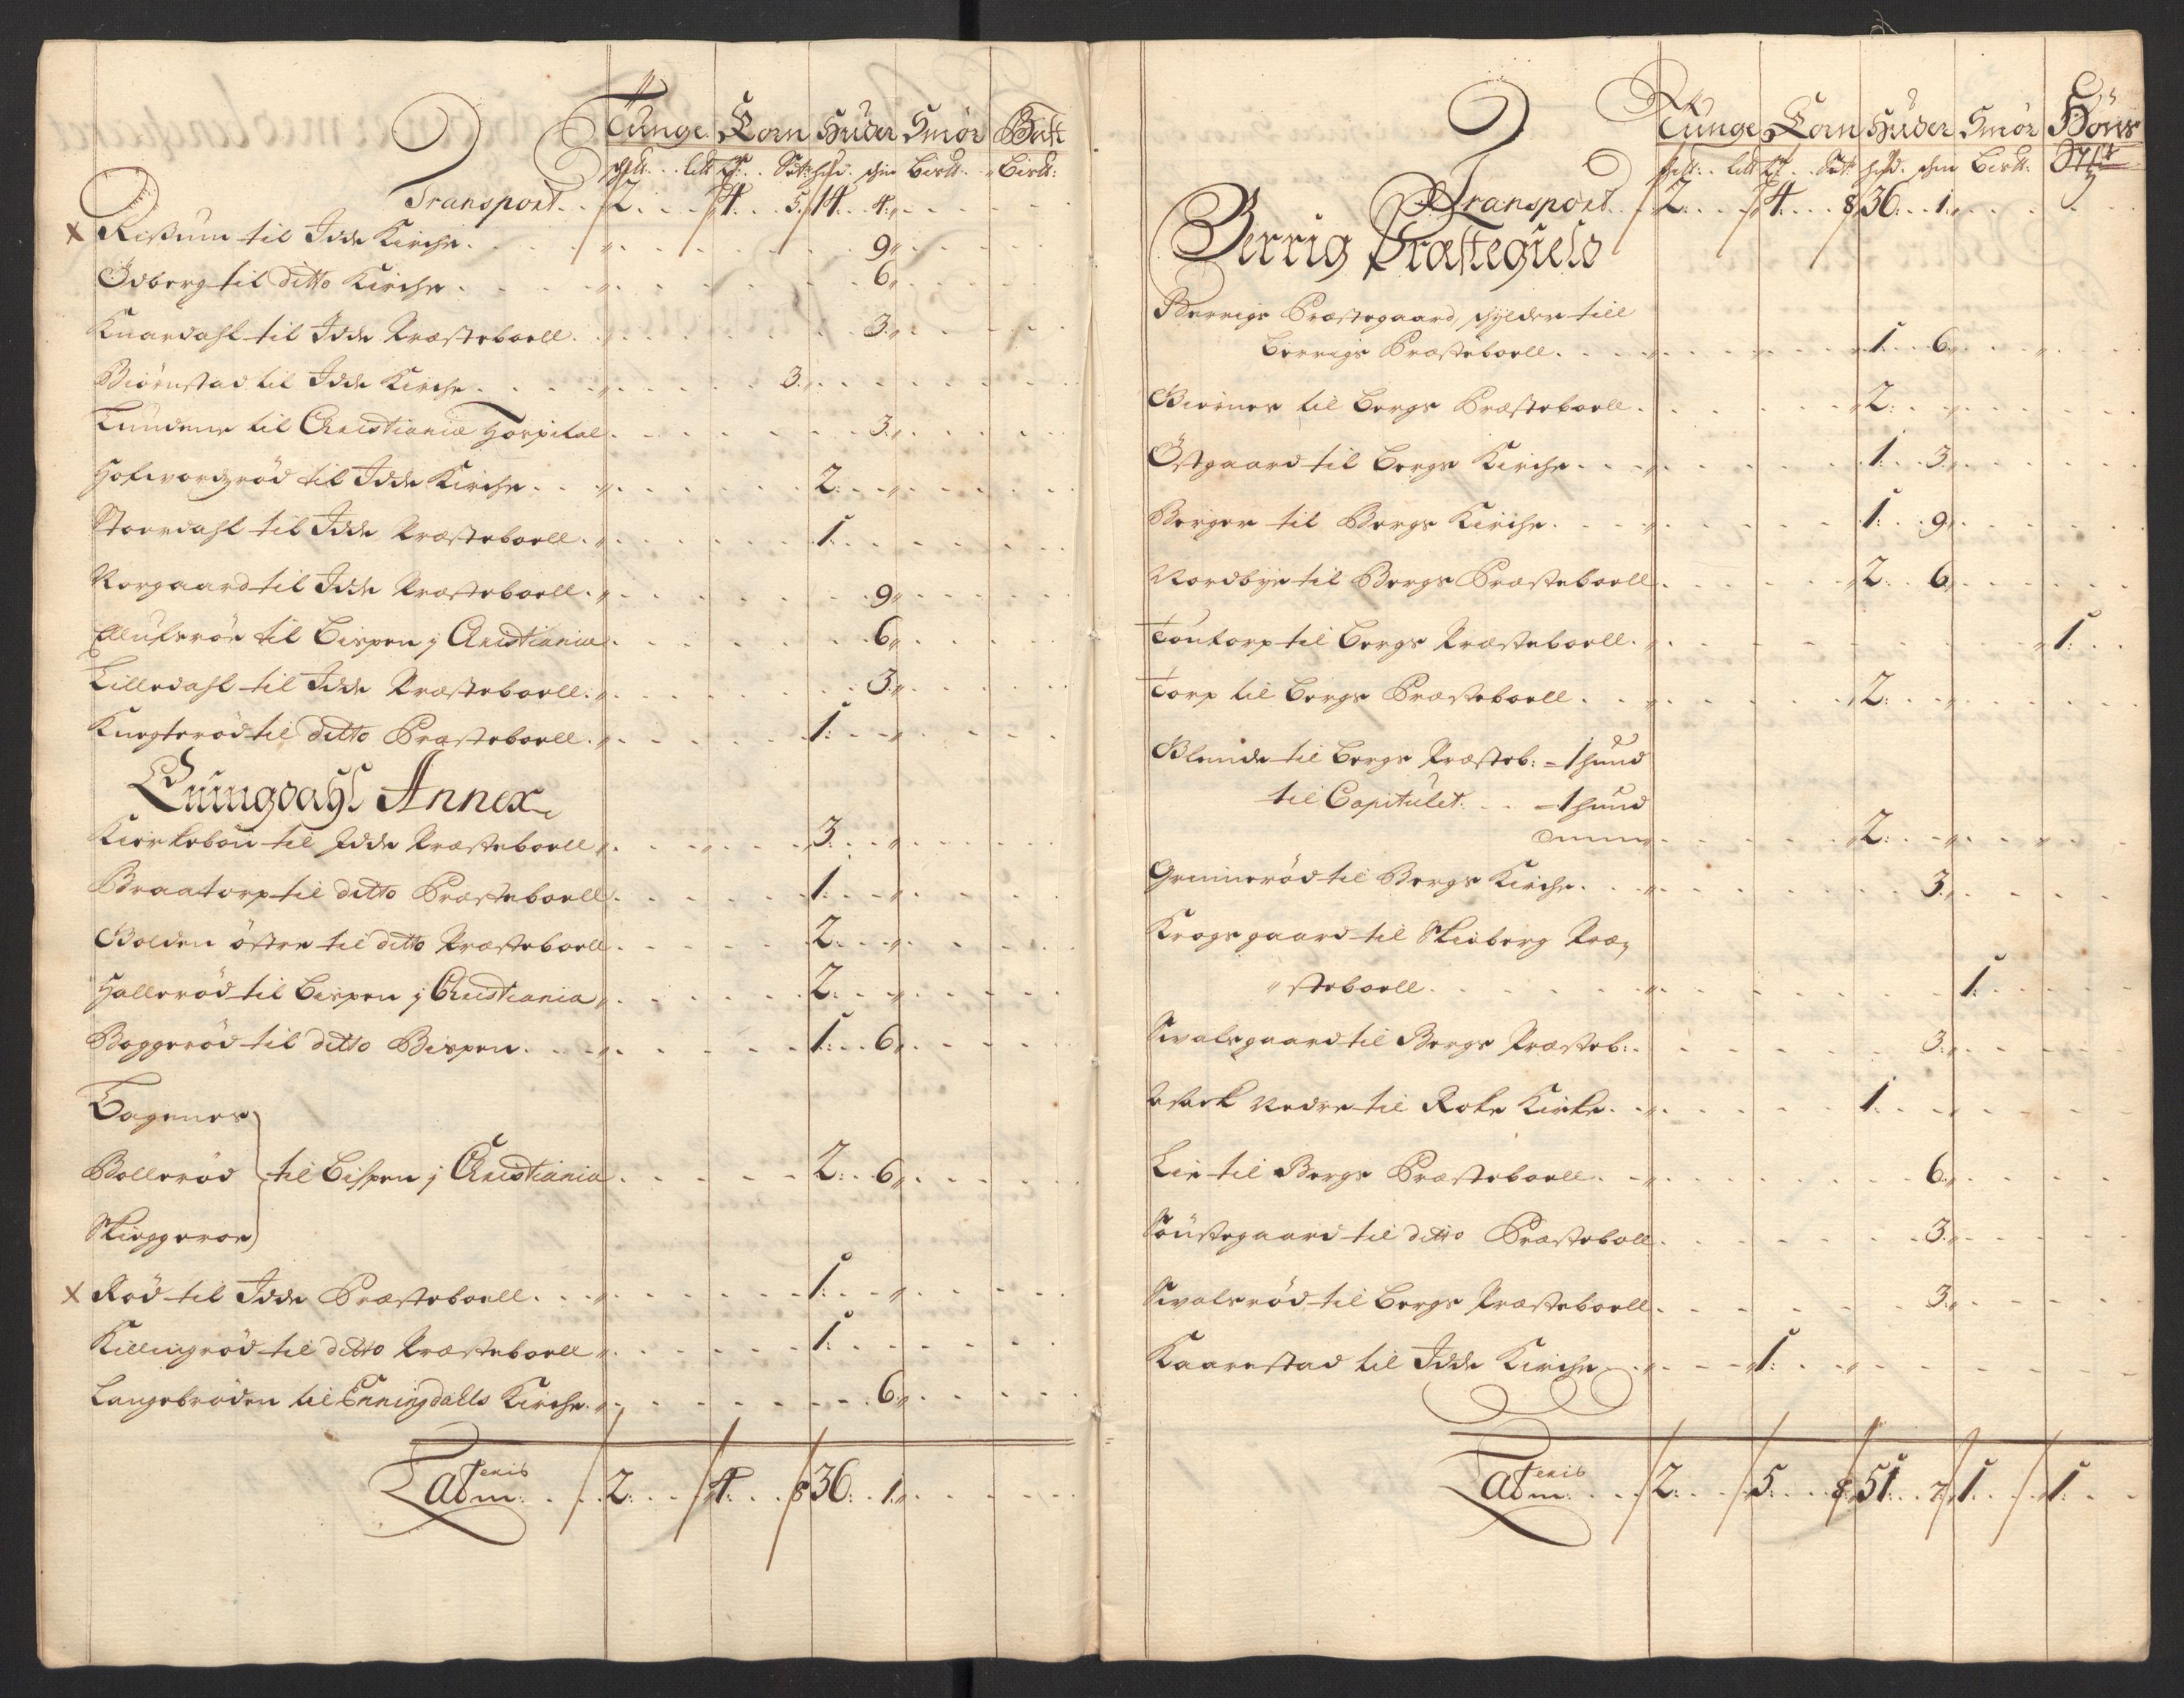 Tunge Korn Huder Smör
Transport. . 2. . . 4. . 5. 14. . 4.
x Rissum til Idde Kirche. 9
Ödberg til ditto Kirche. 6
Knardahl til Idde Præsteboell. 3.
Biörnstad til Idde Kirche. 3.
Lundene til Christiania Hospital. 3.
Hofwordzröd til Idde Kirche. 2.
Stordahl til Idde Præsteboell. 1.
Norgaard til Idde Præsteboell. 9
til Bispen j Christiania 6
Lilledahl til Idde Præsteboell. 3.
Knegteröd til ditto Præsteboell. 1.
Enningdahl Annex
Kierkeböu til Idde Præsteboell 3.
Braatorp til ditto Præsteboell. 1.
Bolden östre til ditto Præsteboell 2.
Holleröd til Bispen j Christiania 2.
Boggeröd til ditto Bispen. 1. 6
Bagenes
Bolleröd til Bispen j Christiania 2. 6
Skieggeröe
x Röd til Idde Præsteboell. 1.
Killingröd til ditto Præsteboell 1.
Langebröden til Enningdalls Kirche. 6
Lateris 2. . . 4. . . 8 36. . 1.
Tunge Korn Huder Smör Höns
Transport 2. . . 4. . . 8 36. . 1.
Berrig Præstegield
Berrigs Præstegaard, schylder till
Berrigs Præsteboell. 1. 6
Biörnes til Bergs Præsteboell. 2.
Östgaard til Bergs Kirche. 1. 3.
Berger til Bergs Kirche. 1. 9
Nordbye til Bergs Præsteboell 2. 6
til Bergs Præsteboell. 1.
Torp til Bergs Præsteboell 2.
Blende til Bergs Præsteb: = 1 hund
til Capitulet. = 1 hund
2.
Grimmeröd til Bergs Kirche. 3.
Krogsgaard til Skieberg Præ=
steboell. 1.
Sivalsgaard til Bergs Præsteb: 3.
Asack Nedre til Roke Kirke. 1.
Lie til Bergs Præsteboell. 6
Söustegaard til ditto Præsteboll 3.
Sivalsröd til Bergs Præsteboell 3.
Kaarestad til Idde Kirche 1.
Lateris 2. . . 5. . . 8 51. . 7. 1. . . 1.